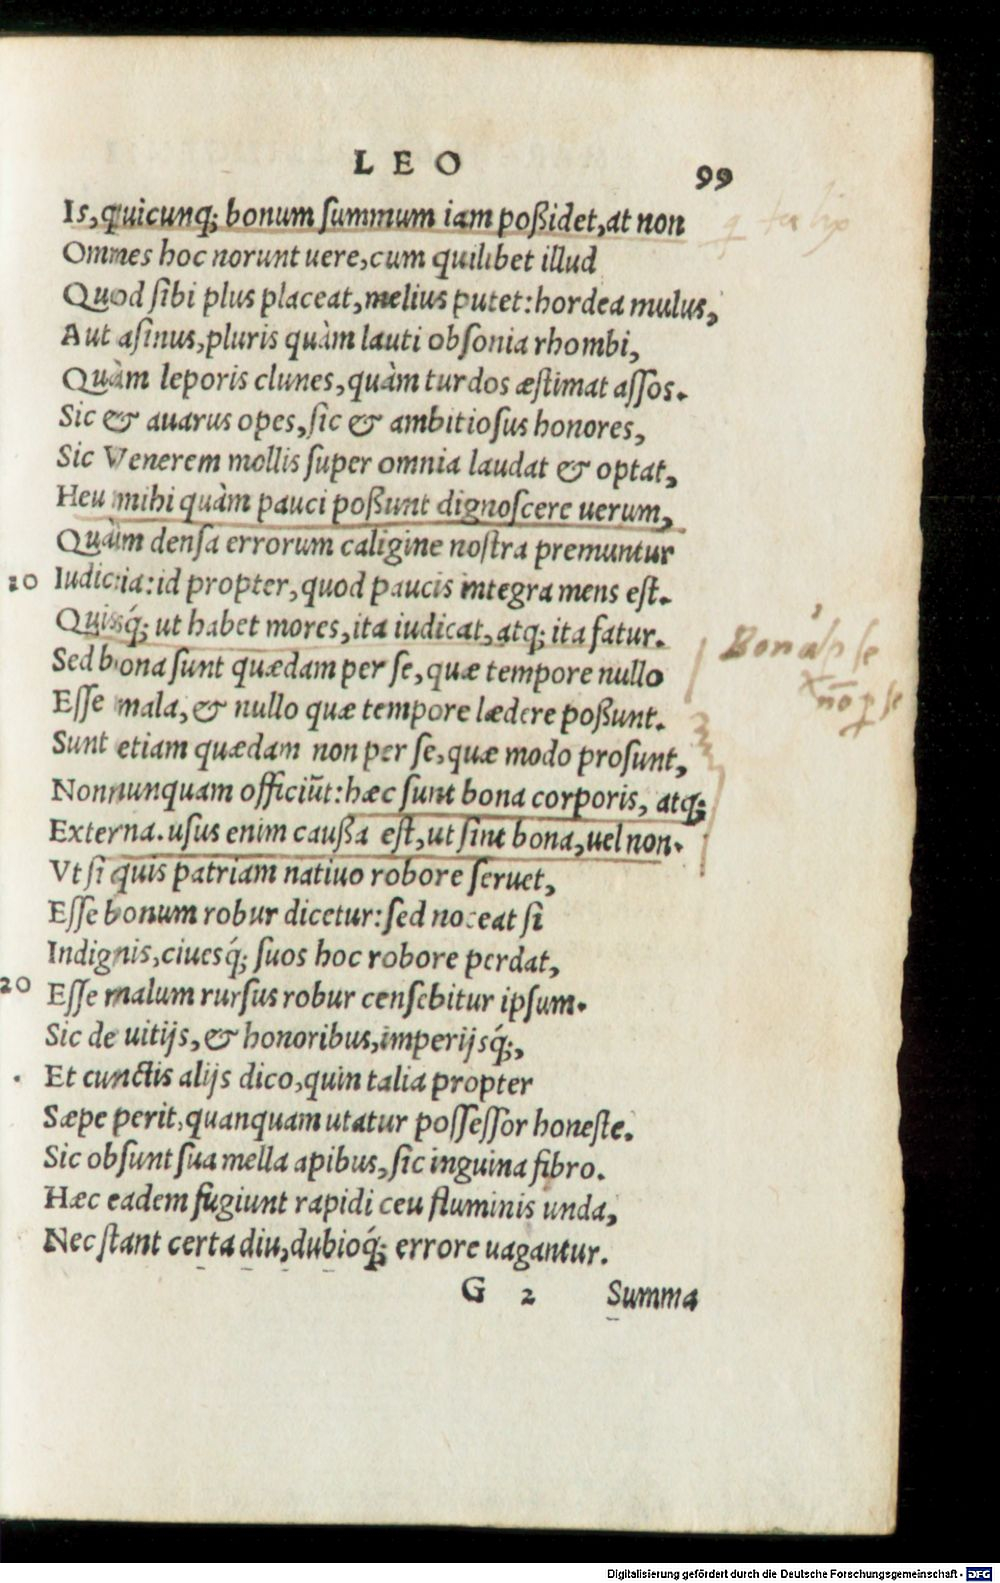 LEO
99
Is, quicunq; bonum ſummum iam poßidet, at non
Omnes hoc norunt uere, cum quilibet illud
Quod ſibi plus placeat, melius putet: hordea mulus,
Aut aſinus, pluris quàm lauti obſonia rhombi,
Quàm leporis clunes, quàm turdos æſtimat aſſos.
Sic & auarus opes, ſic & ambitioſus honores,
Sic Venerem mollis ſuper omnia laudat & optat,
Heu mihi quàm pauci poßunt dignoſcere uerum,
Quàm denſa errorum caligine noſtra premuntur
10 Iudicia: id propter, quod paucis integra mens eſt.
Quiſq́; ut habet mores, ita iudicat, atq; ita fatur.
Sed bona ſunt quædam per ſe, quæ tempore nullo
Eſſe mala, & nullo quæ tempore lædere poßunt.
Sunt etiam quædam non per ſe, quæ modo proſunt,
Nonnunquam officiũt: hæc ſunt bona corporis, atq;
Externa. uſus enim caußa eſt, ut ſint bona, uel non.
Vt ſi quis patriam natiuo robore ſeruet,
Eſſe bonum robur dicetur: ſed noceat ſi
Indignis, ciuesq́; ſuos hoc robore perdat,
20 Eſſe malum rurſus robur cenſebitur ipſum.
Sic de uitijs, & honoribus, imperijsq́;,
Et cunctis alijs dico, quin talia propter
Sæpe perit, quanquam utatur poſſeſſor honeſte.
Sic obſunt ſua mella apibus, ſic inguina fibro.
Hæc eadem fugiunt rapidi ceu fluminis unda,
Nec ſtant certa diu, dubioq́; errore uagantur.
G 2 Summa
Digitalisierung gefördert durch die Deutsche Forschungsgemeinschaft - DFG